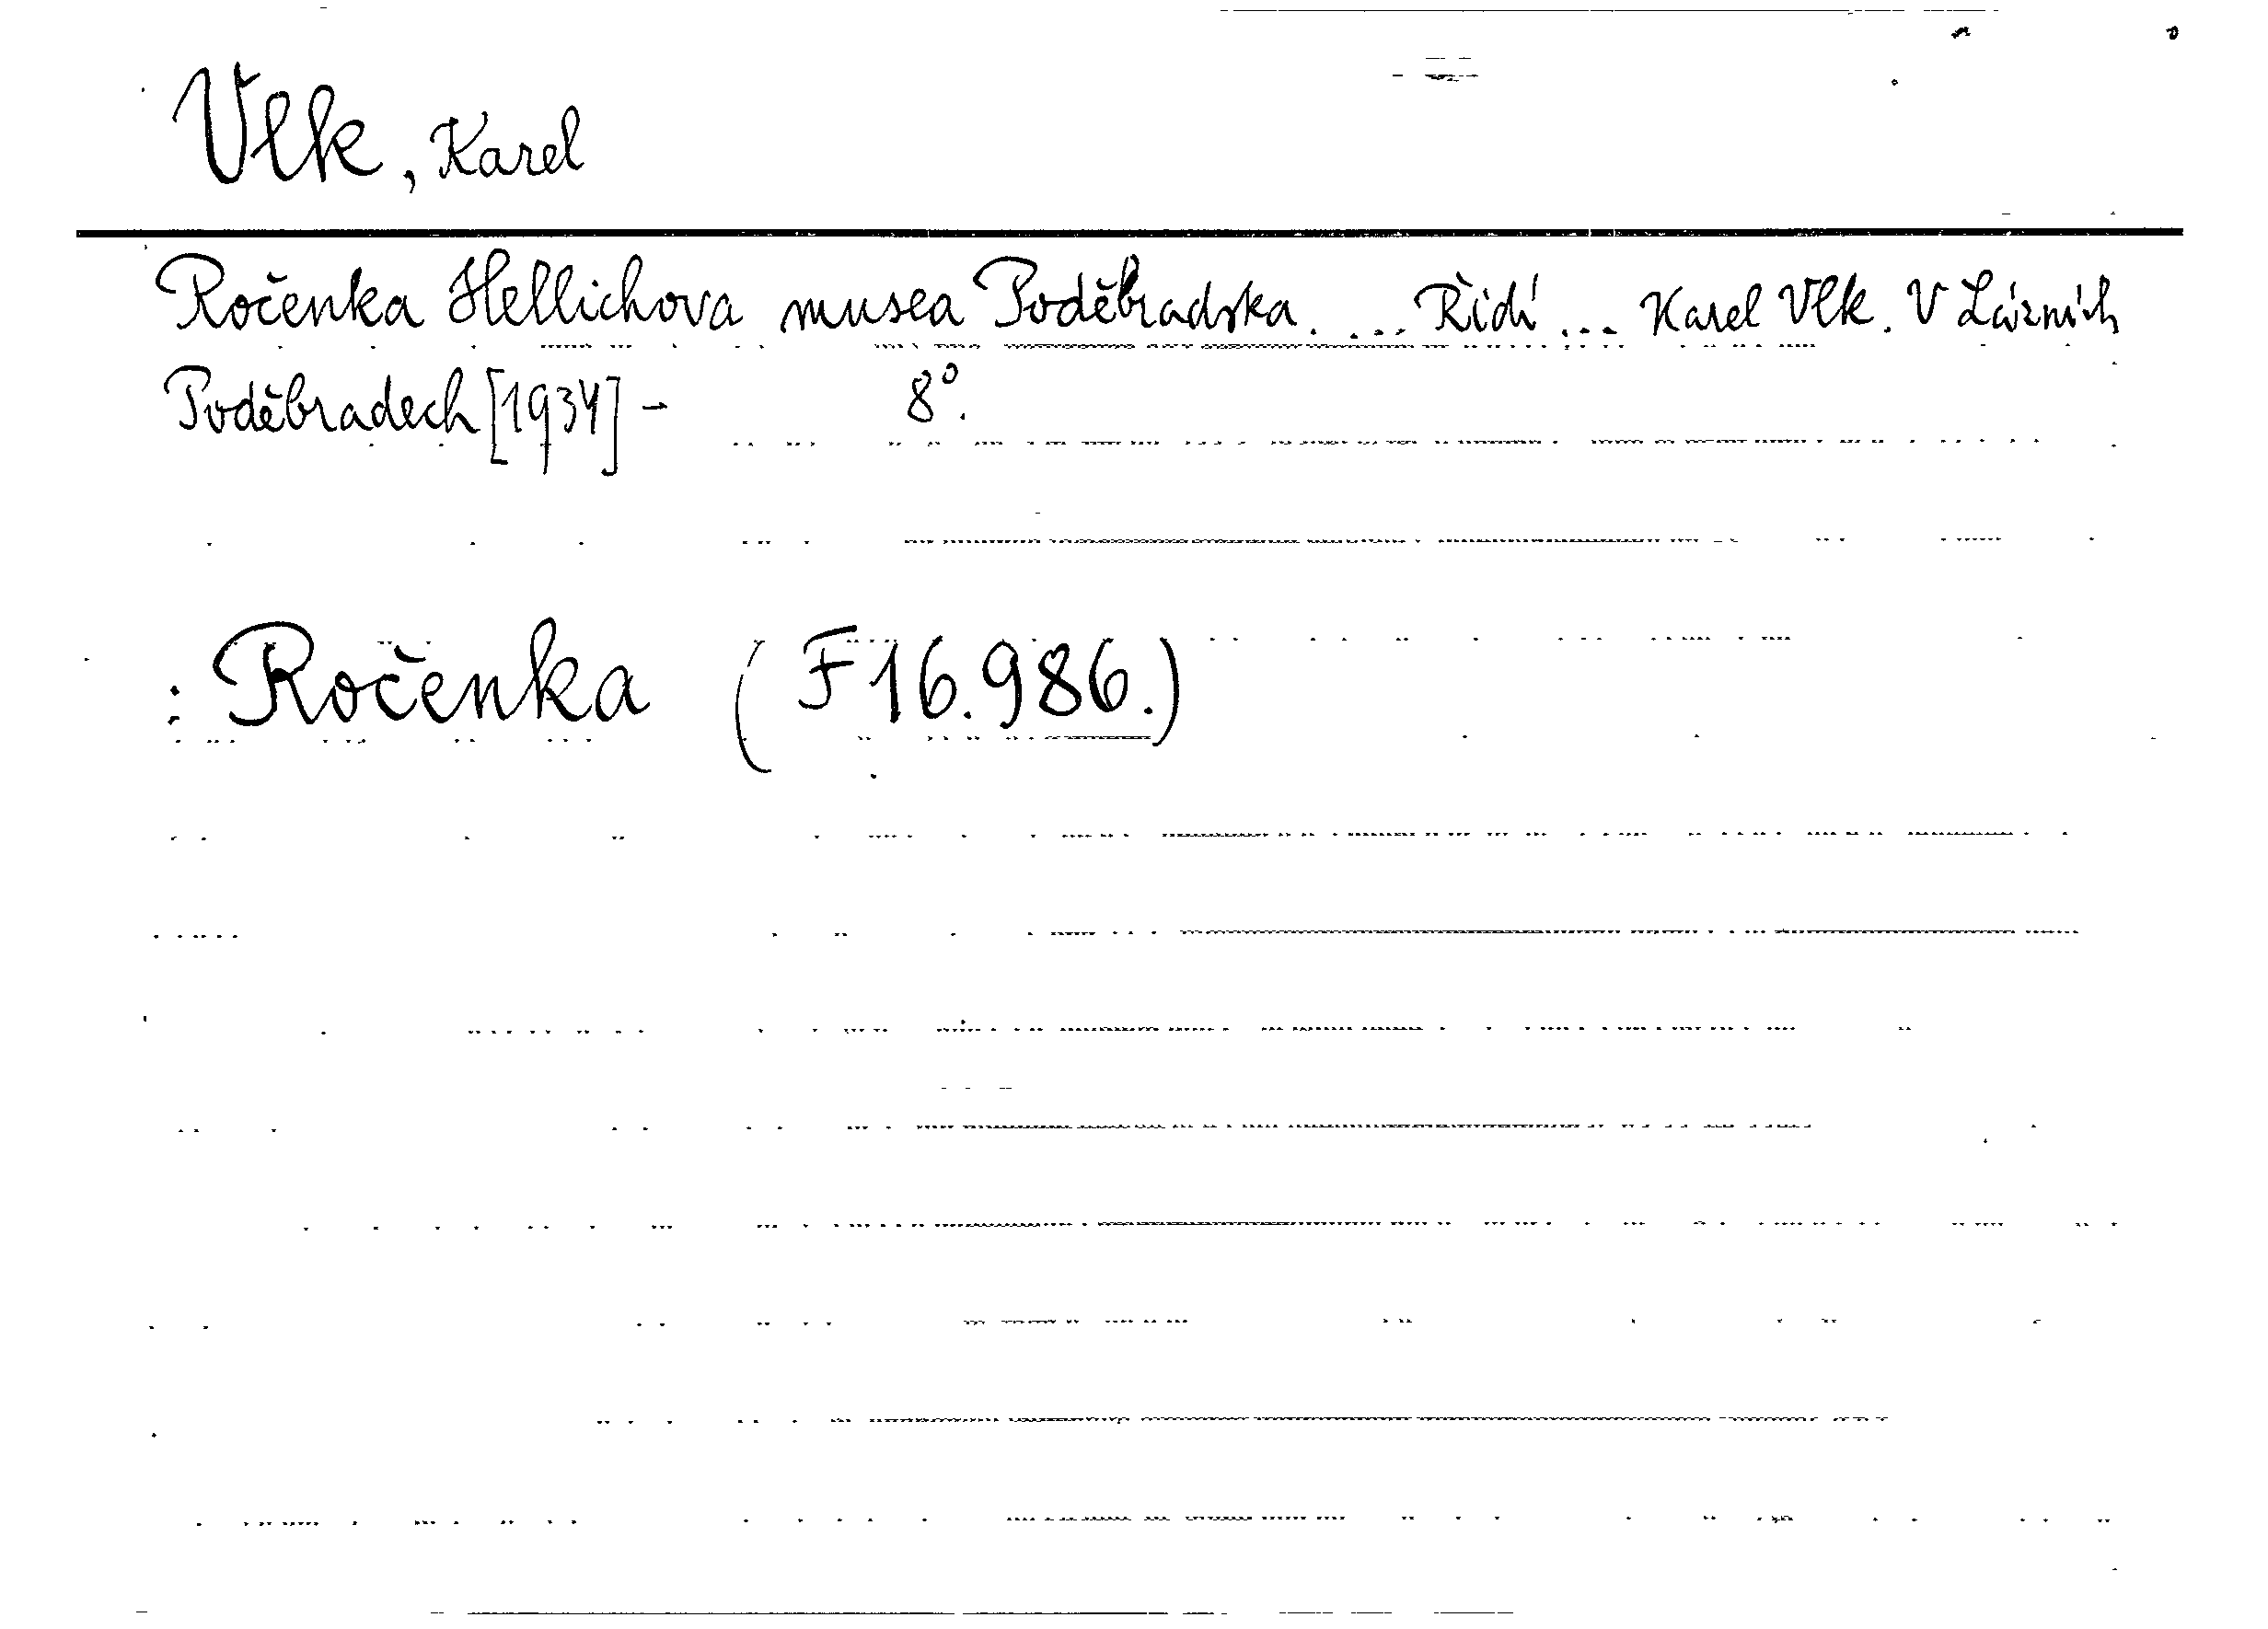 Vlk, Karel
Ročenka Hellichova musea Poděbradska. ... Řídí ... Karel Vlk. V Lázních
Poděbradech [1934] - 8°.
: Ročenka (F 16.986.)